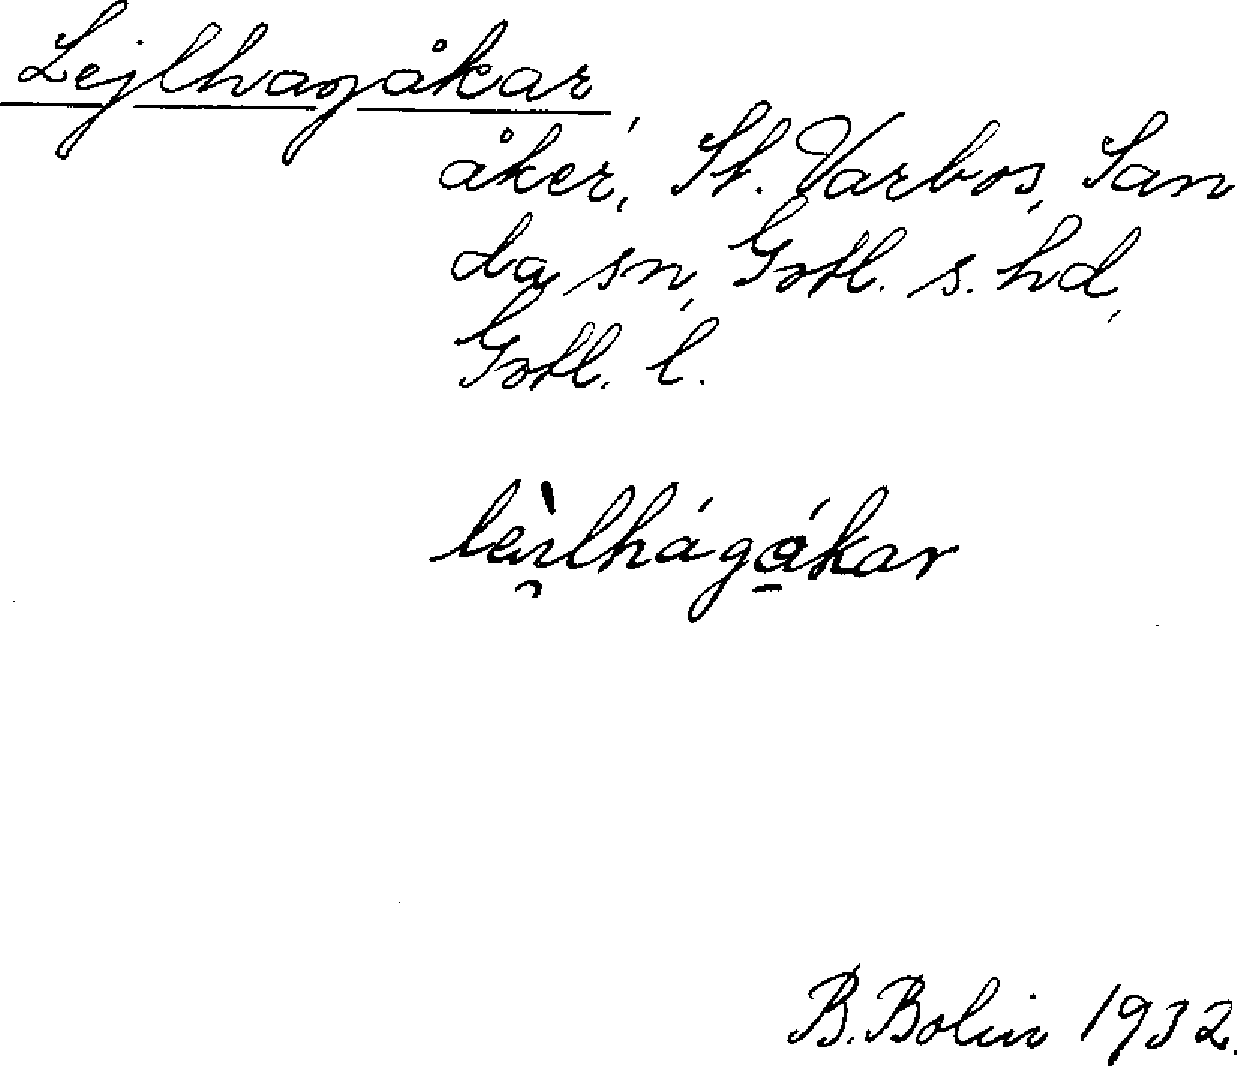 Lejlhagåkar,
åker, St. Varbos, San
da sn, Gotl. s. hd,
Gotl. l.
B. Bolin 1932.